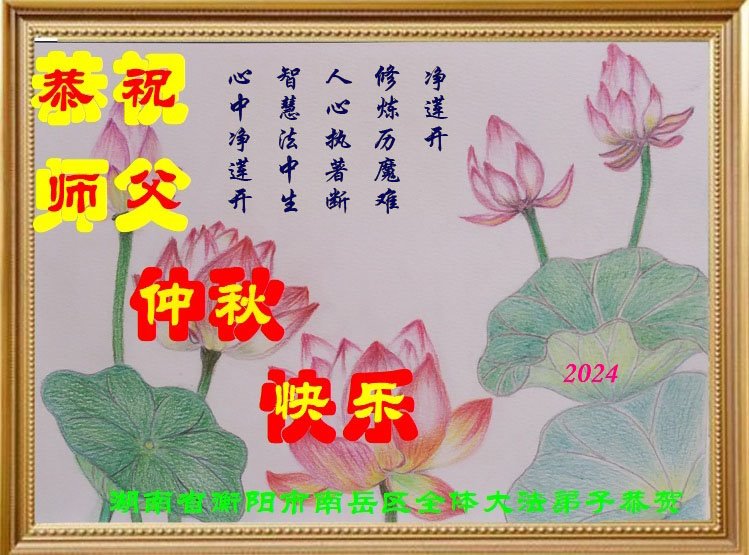 恭祝
师父
仲秋
快乐
净莲开
修炼历魔难
人心执著断
智慧法中生
心中净莲开
2024
湖南省衡阳市南岳区全体大法弟子恭贺